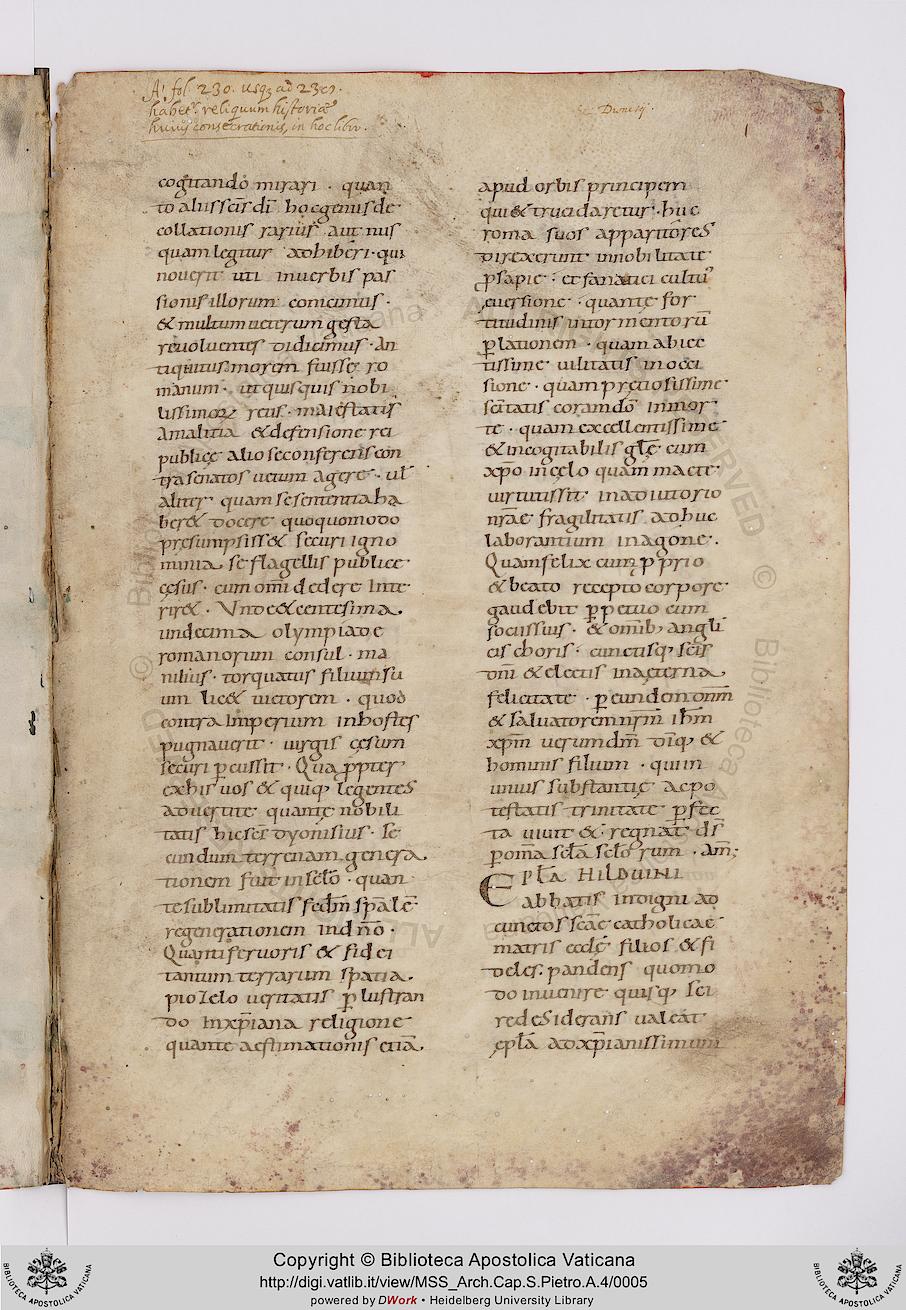 A' fol. 230. usq3 ad
habet reliquum historiæ
huius consecrationis, in hoc libro.
1
cogitando mirari · quan
to aliis scis di hoc genus de
collationis rarius aut nus
quam legitur adhiberi · qui
noverit uti in verbis pas
sionis illorum conicimus ·
& multum ueterum gesta
reuoluentes didicimus · An
tiquitus morem fuisse ro
manum · ut quisquis nobi
lissimorꝝ reus · maiestatis
Amalitia & defensione rei
publicę alio se conferens con
tra senatos uetum agere · ul
aliter quam se sententia ha
ber& docere quoquomodo
presumpsiss& securi igno
minia se flagellis publice
cęsus · cum omi dedere Inte
rir& · Vnde & centesima.
undecima olympiade
romanorum consul · ma
nilius · torquatus filium su
um lic& uictorem · quod
contra Imperium in hostes
pugnauerit · uirgis cęsum
securi pcussit · Qua ppter
ex his uos & quiq; legentes
aduertite quantę nobili
tatis hic scs dyonisius · se
cundum terrenam genera
tionem fuit in sclo · quan
te sublimitatis scdm spale
regenerationem in dno ·
Quanti feruoris & fidei
tantum terrarum spatia.
pio zelo ueritatis plustran
do In xpiana religione
quante aestimationis etia
apud orbis principem
qui & trucidaretur · huc
roma suos apparitores
direxerunt in nobilitate
psapie · et fanatici cultu
euersione · quante for
titudinis in tormentoru
plationem · quam abiec
tissime uilitatis in occi
sione · quam preciosissime
scitatis coram do in mor
te · quam excellentissime
& incogitabilis gle cum
xpo in cęlo quam macte
uirtutis sit in adiutorio
nrae fragilitatis adhuc
laborantium in agone.
Quam felix cum pprio
& beato recepto corpore
gaudebit ppetuo cum
sociis suis · & omib; angli
cis choris · cunctisq; scis
dni & electis in aeterna
felicitate · p eundem dnm
& saluatorem nrm ihm
xpm uerum dm diq; &
hominis filium · qui in
unius substantię ac po
testatis trinitate pfec
ta uiuit & regnat ds
p oma scla sclorum · am;
EPLA HILDUINI
abbatis indigni ad
cunctos scae catholicae
matris eccle filios & fi
deles · pandens quomo
do inuenire quisq; sci
re desiderans ualeat
epla ad xpianissimum
Copyright © Biblioteca Apostolica Vaticana
http://digi.vatlib.it/view/MSS_Arch.Cap.S.Pietro.A.4/0005
powered by DWork • Heidelberg University Library